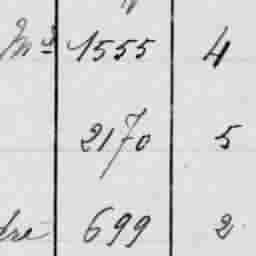 Md 1555 4
2170 5
dre 699 2